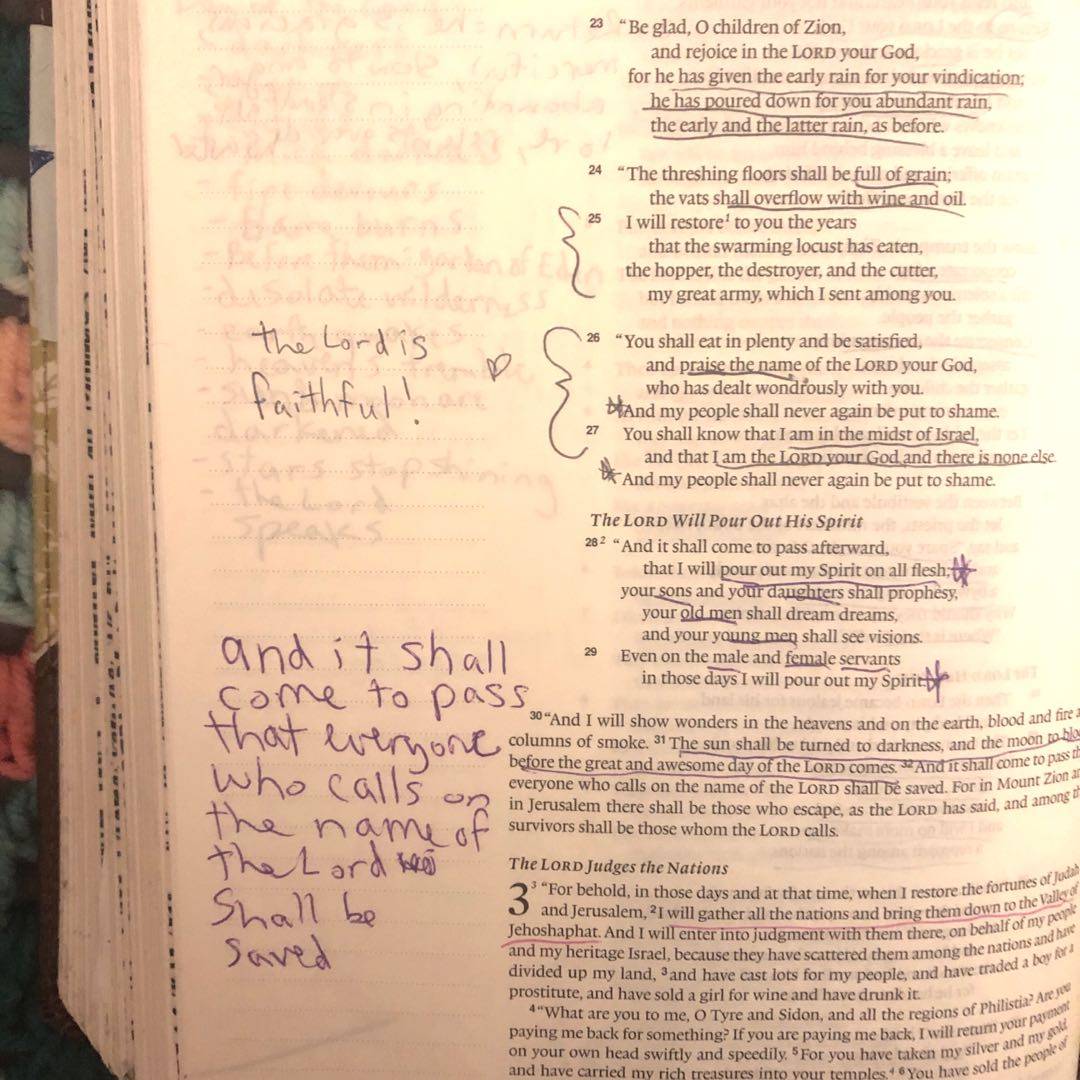 23 “Be glad, O children of Zion,
and rejoice in the LORD your God,
for he has given the early rain for your vindication;
he has poured down for you abundant rain,
the early and the latter rain, as before.
24 “The threshing floors shall be full of grain;
the vats shall overflow with wine and oil.
25 I will restore1 to you the years
that the swarming locust has eaten,
the hopper, the destroyer, and the cutter,
my great army, which I sent among you.
26 “You shall eat in plenty and be satisfied,
and praise the name of the LORD your God,
who has dealt wondrously with you.
And my people shall never again be put to shame.
27 You shall know that I am in the midst of Israel,
and that I am the LORD your God and there is none else.
And my people shall never again be put to shame.
the Lord is
faithful!
The LORD Will Pour Out His Spirit
28 2 “And it shall come to pass afterward,
that I will pour out my Spirit on all flesh;
your sons and your daughters shall prophesy,
your old men shall dream dreams,
and your young men shall see visions.
29 Even on the male and female servants
in those days I will pour out my Spirit.
and it shall
come to pass
that everyone
who calls on
the name of
the Lord
shall be
saved
30 “And I will show wonders in the heavens and on the earth, blood and fire
columns of smoke. 31 The sun shall be turned to darkness, and the moon to
before the great and awesome day of the LORD comes. 32 And it shall come to pass
everyone who calls on the name of the LORD shall be saved. For in Mount Zion
in Jerusalem there shall be those who escape, as the LORD has said, and among
survivors shall be those whom the LORD calls.
The LORD Judges the Nations
3 3 “For behold, in those days and at that time, when I restore the fortunes of Judah
and Jerusalem, 2 I will gather all the nations and bring them down to the Valley of
Jehoshaphat. And I will enter into judgment with them there, on behalf of my people
and my heritage Israel, because they have scattered them among the nations and have
divided up my land, 3 and have cast lots for my people, and have traded a boy for a
prostitute, and have sold a girl for wine and have drunk it.
4 “What are you to me, O Tyre and Sidon, and all the regions of Philistia? Are you
paying me back for something? If you are paying me back, I will return your payment
on your own head swiftly and speedily. 5 For you have taken my silver and my gold,
and have carried my rich treasures into your temples.4 6 You have sold the people of